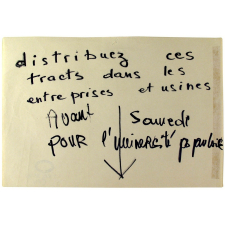 distribuez ces
tracts dans les
entreprises et usines
Avant Samedi
POUR l'université populaire